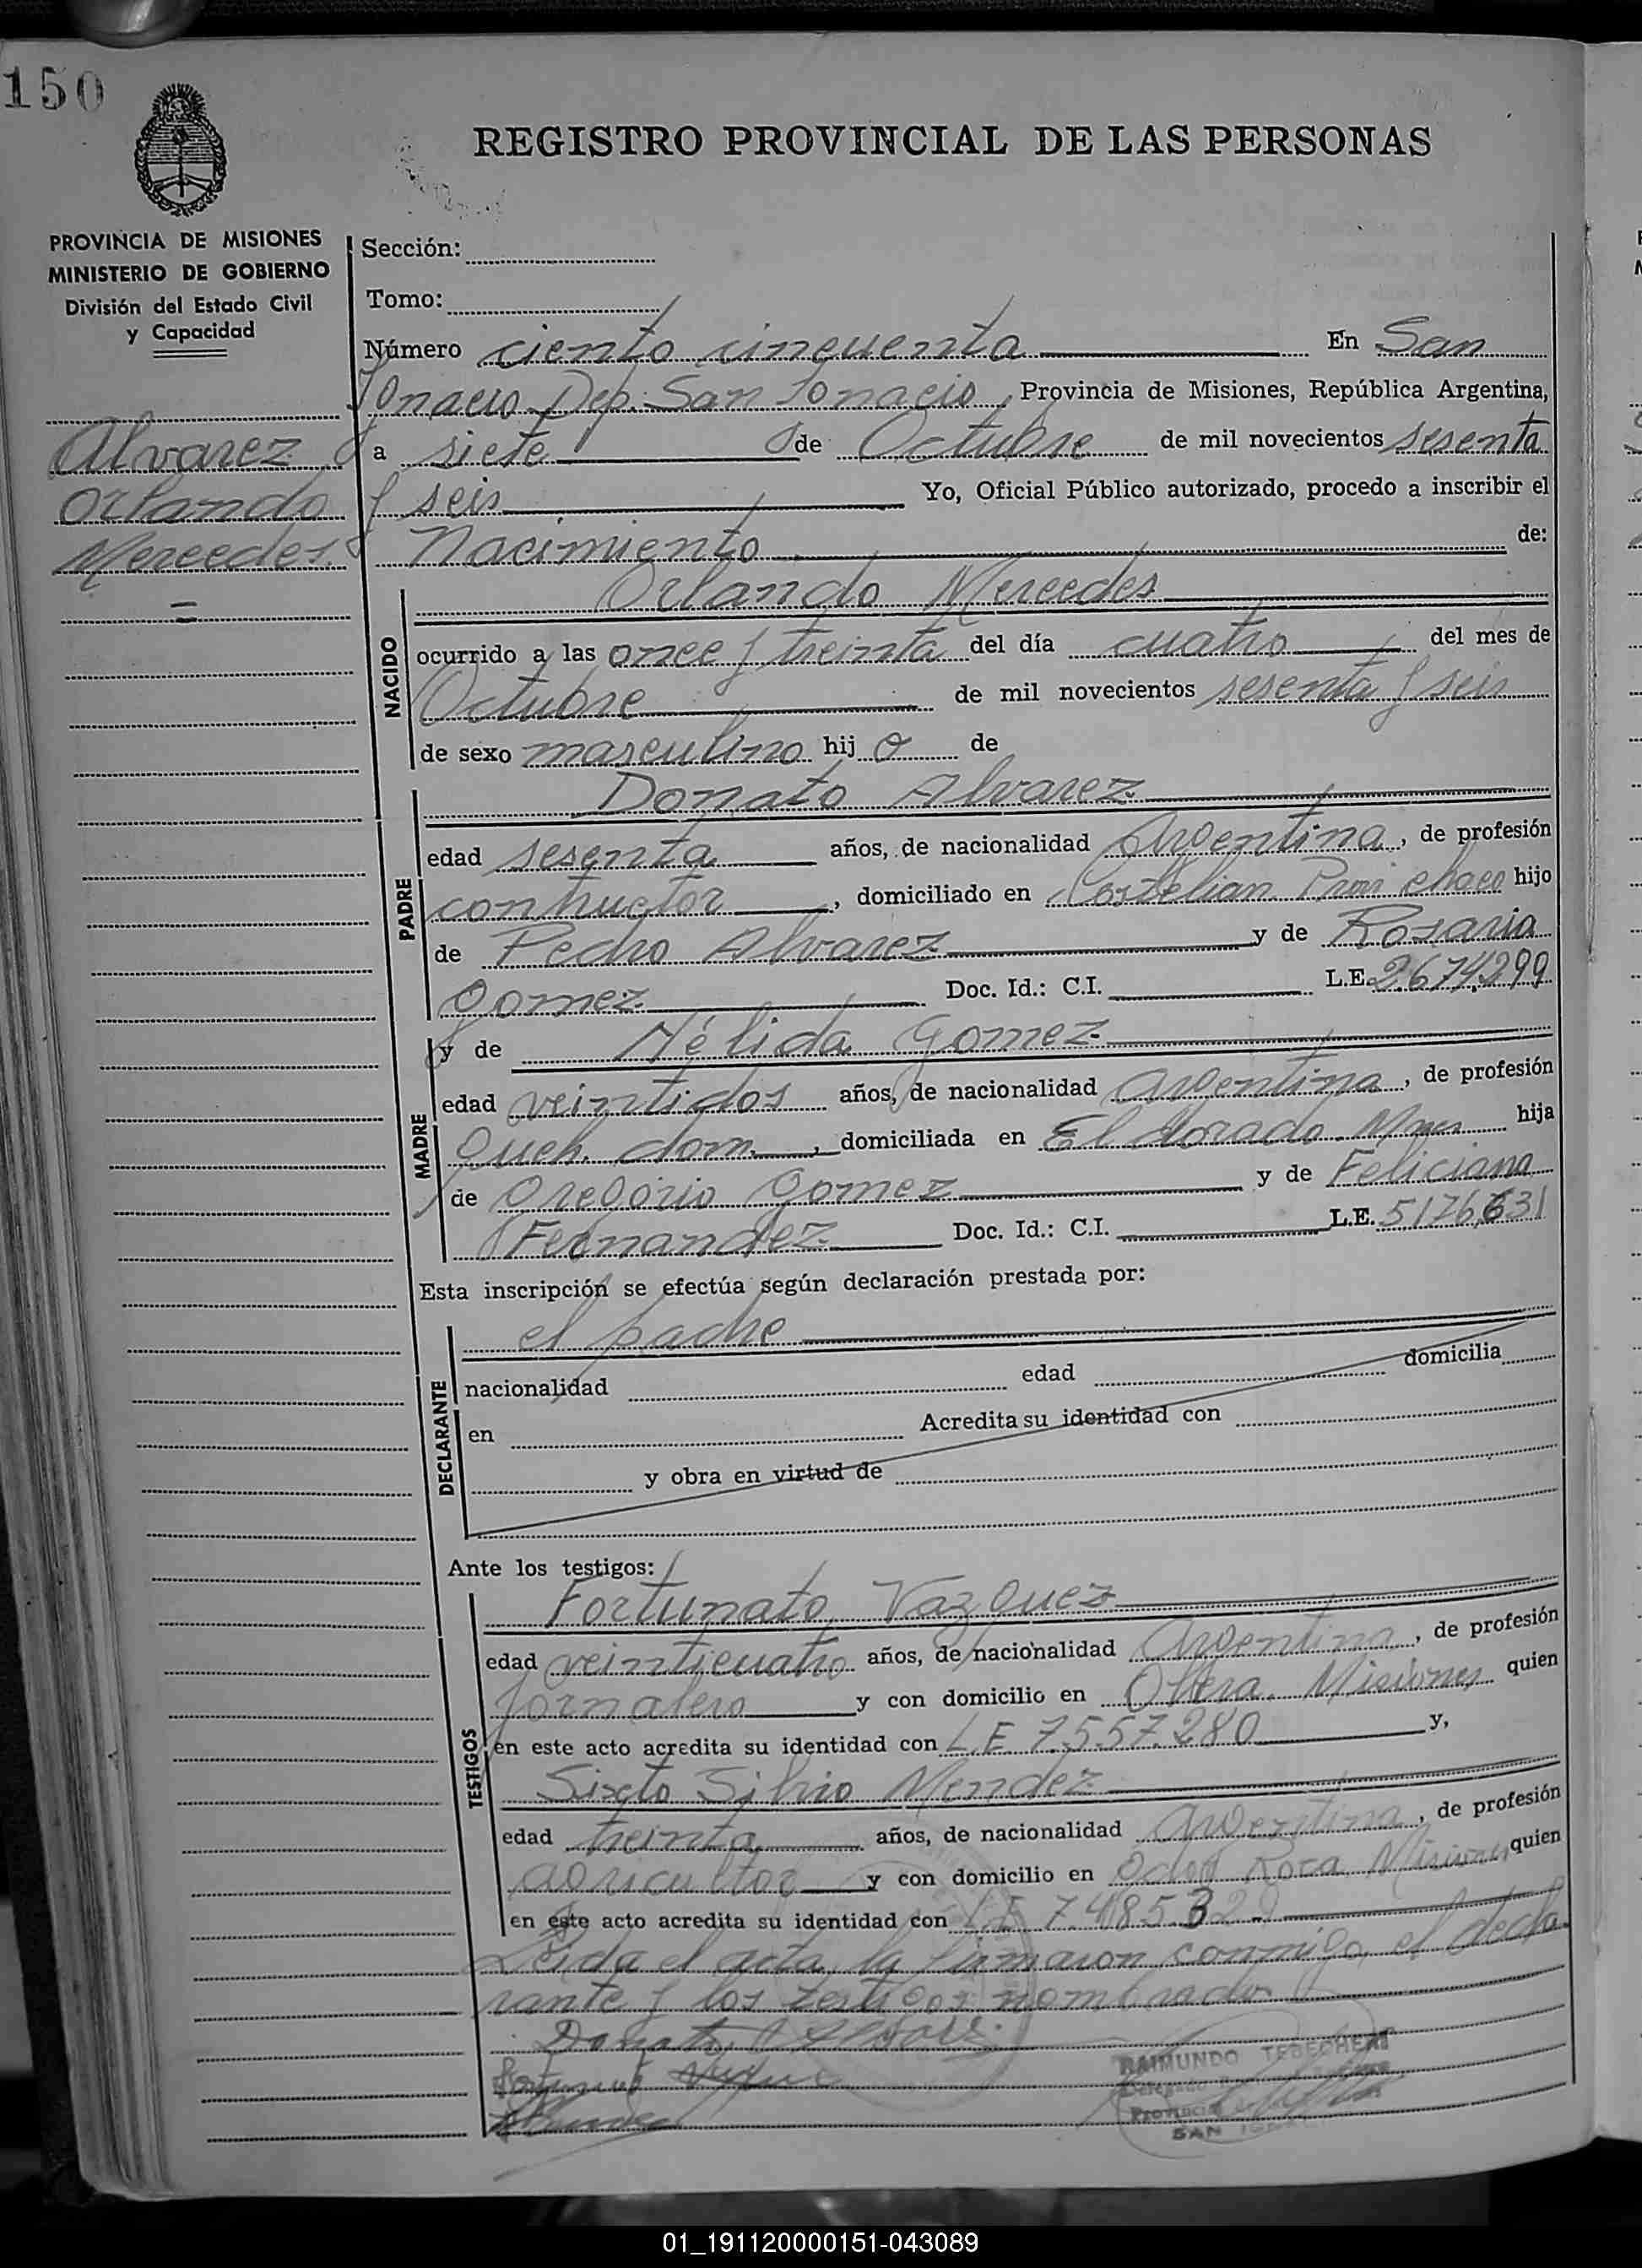 150
REGISTRO PROVINCIAL DE LAS PERSONAS
PROVINCIA DE MISIONES
MINISTERIO DE GOBIERNO
División del Estado Civil
y Capacidad
Alvarez
Orlando
Mercedes.
Sección:
Tomo:
Número ciento cincuenta En San
Ignacio Dep. San Ignacio, Provincia de Misiones, República Argentina,
a siete de Octubre de mil novecientos sesenta
y seis Yo, Oficial Público autorizado, procedo a inscribir el
Nacimiento de:
NACIDO
Orlando Mercedes
ocurrido a las once y treinta del día cuatro del mes de
Octubre de mil novecientos sesenta y seis
de sexo masculino hijo de
PADRE
Donato Alvarez
edad sesenta años, de nacionalidad Argentina, de profesión
, domiciliado en chaco hijo
de Pedro Alvarez y de Rosaria
Gomez Doc. Id.: C.I. L.E. 2674299
MADRE
y de Nélida Gomez
edad veintidos años, de nacionalidad argentina, de profesión
Queh. dom. , domiciliada en El dorado Mnes hija
de Gregorio Gomez y de Feliciana
Fernandez Doc. Id.: C.I. L.E. 5176631
Esta inscripción se efectúa según declaración prestada por:
DECLARANTE
el padre
nacionalidad edad domicilia
en Acredita su identidad con
y obra en virtud de
Ante los testigos:
TESTIGOS
Fortunato Vazquez
edad veinticuatro años, de nacionalidad Argentina, de profesión
Jornalero y con domicilio en Obera. Misiones quien
en este acto acredita su identidad con L.E 7.557.280 y,
Sixto Silvio Mendez
edad treinta años, de nacionalidad Argentina, de profesión
agricultor y con domicilio en Roca Misiones quien
en este acto acredita su identidad con LE 7.485.329
Leida el acta, la firmaron conmigo, el decla
rante y los testigos nombrados
Donato Alvarez
RAIMUNDO TEBECHERI
Delegado
Provincial
SAN
01_191120000151-043089